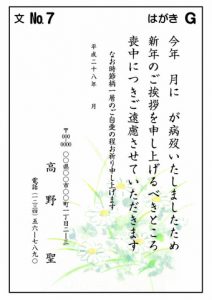 文 No.7
はがき G
今年　月に　が病歿いたしましたため
新年のご挨拶を申し上げるべきところ
喪中につきご遠慮させていただきます
なお時節柄一層のご自愛の程お祈り申し上げます
平成二十八年　月
〒000-0000
〇〇県〇〇市〇〇町一丁目二ー三
高野　聖
電話（一二三四）五六ー七八九〇